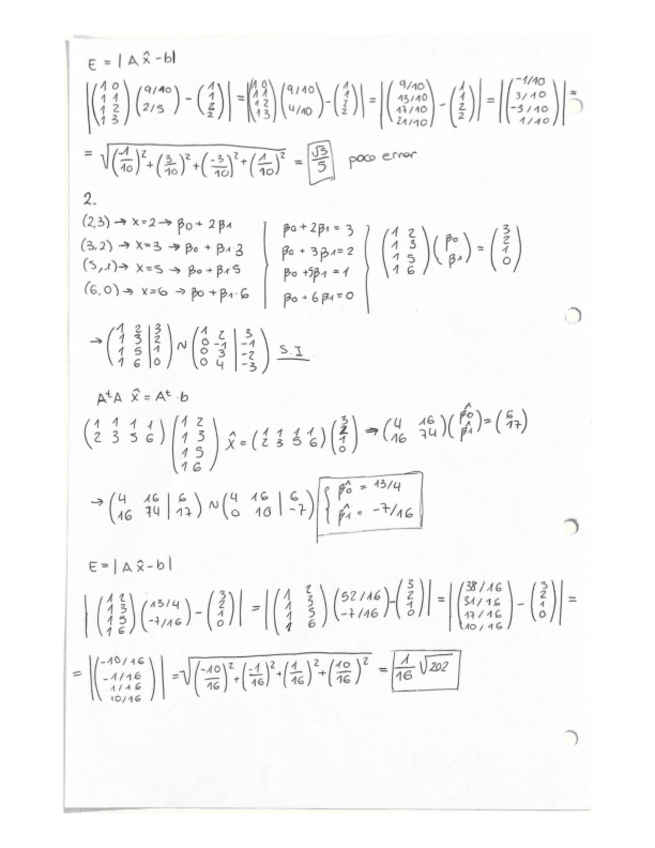 E = | A x̂ - b|
|(1 0; 1 1; 1 2; 1 3) (9/10; 2/5) - (1; 1; 2; 2)| = |(1 0; 1 1; 1 2; 1 3) (9/10; 4/10) - (1; 1; 2; 2)| = |(9/10; 13/10; 17/10; 21/10) - (1; 1; 2; 2)| = |(-1/10; 3/10; -3/10; 1/10)| =
= √((-1/10)² + (3/10)² + (-3/10)² + (1/10)²) = √3/5 poco error
2.
(2,3) → x=2 → β0 + 2β1 | β0 + 2β1 = 3
(3,2) → x=3 → β0 + β1·3 | β0 + 3β1 = 2
(5,1) → x=5 → β0 + β1 5 | β0 + 5β1 = 1
(6,0) → x=6 → β0 + β1·6 | β0 + 6β1 = 0
(1 2; 1 3; 1 5; 1 6) (β0; β1) = (3; 2; 1; 0)
→ (1 2 | 3; 1 3 | 2; 1 5 | 1; 1 6 | 0) ~ (1 2 | 3; 0 -1 | -1; 0 3 | -2; 0 4 | -3) S.I
AᵗA x̂ = Aᵗ·b
(1 1 1 1; 2 3 5 6) (1 2; 1 3; 1 5; 1 6) x̂ = (1 1 1 1; 2 3 5 6) (3; 2; 1; 0) → (4 16; 16 74) (β̂0; β̂1) = (6; 17)
→ (4 16 | 6; 16 74 | 17) ~ (4 16 | 6; 0 10 | -7) { β̂0 = 13/4; β̂1 = -7/16
E = | A x̂ - b|
|(1 2; 1 3; 1 5; 1 6) (13/4; -7/16) - (3; 2; 1; 0)| = |(1 2; 1 3; 1 5; 1 6) (52/16; -7/16) - (3; 2; 1; 0)| = |(38/16; 31/16; 17/16; 10/16) - (3; 2; 1; 0)| =
= |(-10/16; -1/16; 1/16; 10/16)| = √((-10/16)² + (-1/16)² + (1/16)² + (10/16)²) = 1/16 √202